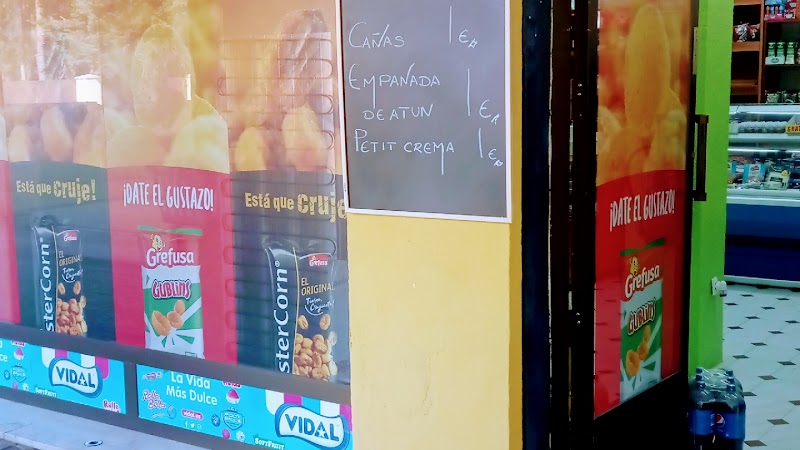 CAÑAS 1€
EMPAÑADA
DE ATUN 1€
PETIT CREMA 1€
Está que Cruje!
¡DATE EL GUSTAZO!
Está que Cruje
Grefusa
GUBLINS
Grefusa
EL ORIGINAL
sterCorn®
Grefusa
EL ORIGINA
sterCorn®
VIDAL
La Vida
Más Dulce
VIDAL
SOFTFRUIT
¡DATE EL GUSTAZO!
Grefusa
GUBLINS